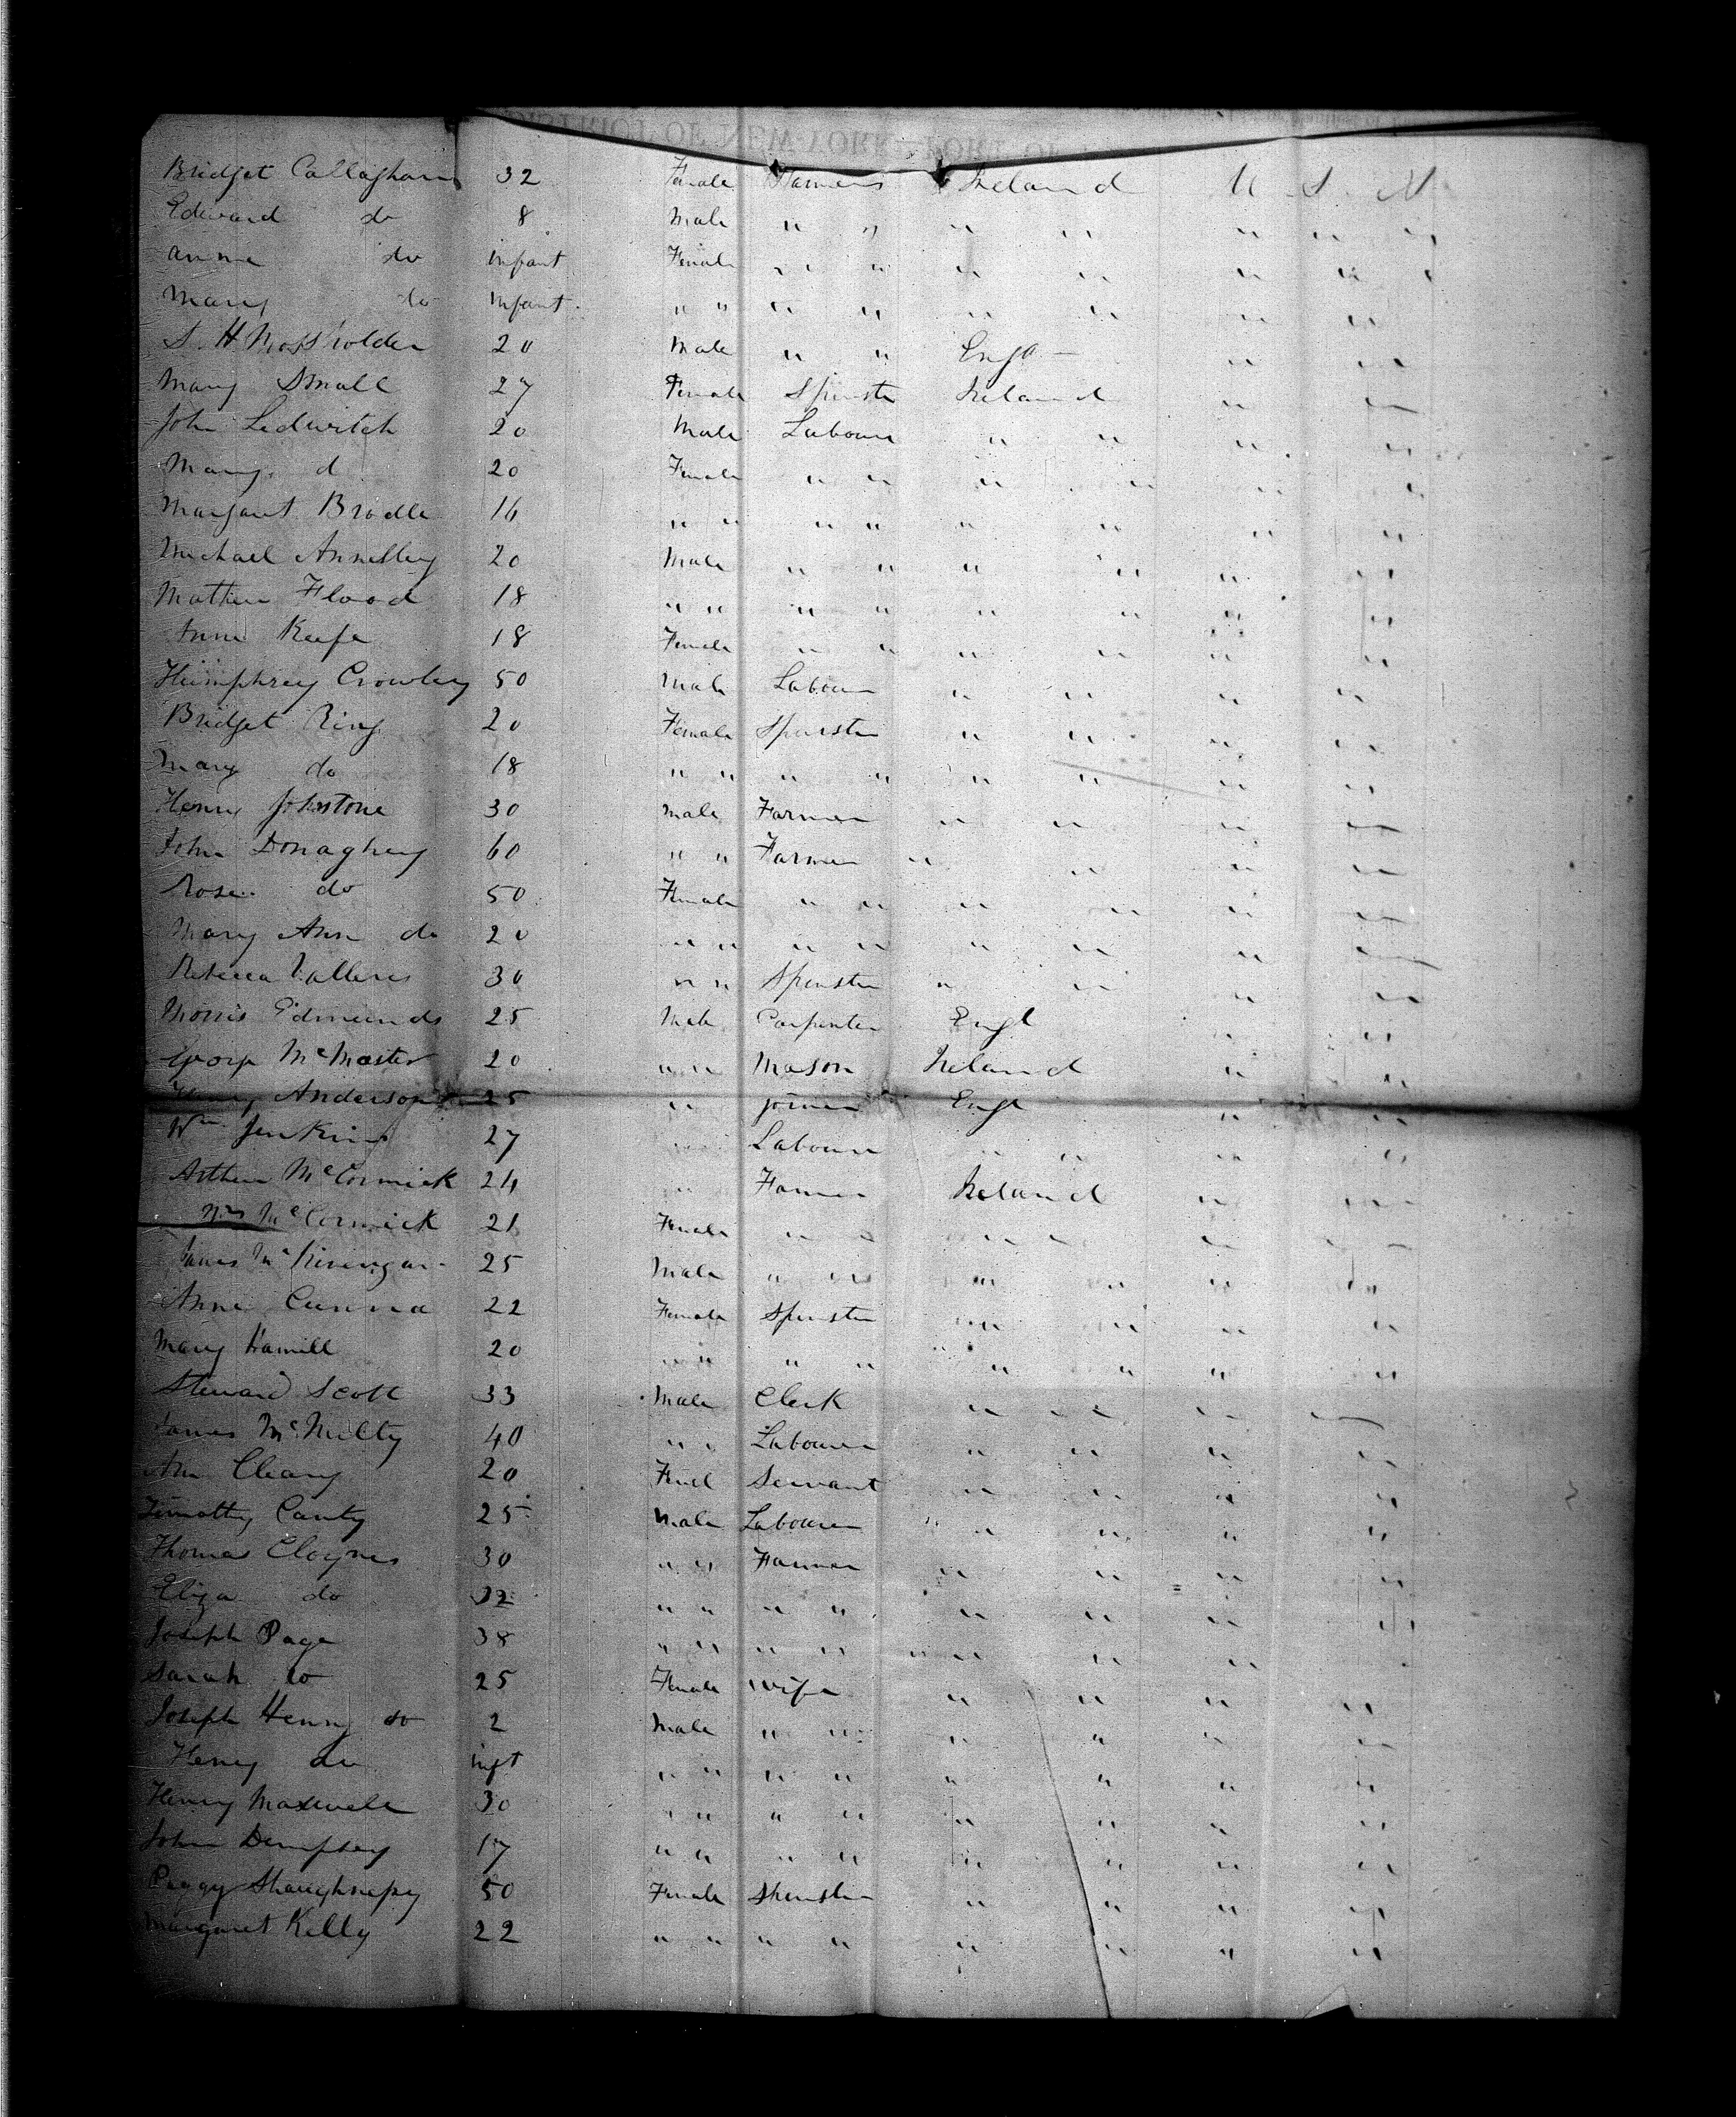 DISTRICT OF NEW-YORK—PORT OF
Bridget Callaghan 32 Female Farmers Ireland U S N
Edward do 8 Male " " " " " " "
Anne do infant Female " " " " " " "
Mary do infant " " " " " " " "
S. H 20 Male " " Engl " "
Mary Small 27 Female Spinster Ireland " "
John Ledwitch 20 Male Labourer " " " "
Mary d 20 Female " " " " " "
Margaret Brodle 16 " " " " " " " "
Michael Annesley 20 Male " " " " " "
Mathew Flood 18 " " " " " " " "
Anne Keefe 18 Female " " " " " "
Humphrey Crowley 50 Male Labourer " " " "
Bridget Ring 20 Female Spinster " " " "
Mary do 18 " " " " " " " "
Henry Johnstone 30 Male Farmer " " " "
John Donaghey 60 " " Farmer " " " "
Rose do 50 Female " " " " " "
Mary Ann do 20 " " " " " " " "
Rebecca 30 " " Spinster " " " "
Morris Edmunds 25 Male Carpenter Engl " "
George McMaster 20 " " Mason Ireland " "
Henry Anderson 25 " Joiner Engl " "
Wm Jenkins 27 Labourer " " " "
Arthur McCormick 24 " Farmer Ireland " "
Mrs McCormick 21 Female " " " " " "
James 25 Male " " " " " "
Anne Cunna 22 Female Spinster " " " "
Mary Hamill 20 " " " " " " " "
Steward Scott 33 Male Clerk " " " "
James McNulty 40 " " Labourer " " " "
Ann Cleary 20 Feml Servant " " " "
Timothy Canty 25 Male Labourer " " " "
Thomas Cloynes 30 " " Farmer " " " "
Eliza do 32 " " " " " " " "
Joseph Page 38 " " " " " " " "
Sarah do 25 Female Wife " " " "
Joseph Henry do 2 Male " " " " " "
Henry do inft " " " " " " " "
Henry Maxwell 30 " " " " " " " "
John Dempsey 17 " " " " " " " "
Peggy Shaughnessy 50 Female Spinster " " " "
Margaret Kelly 22 " " " " " " " "